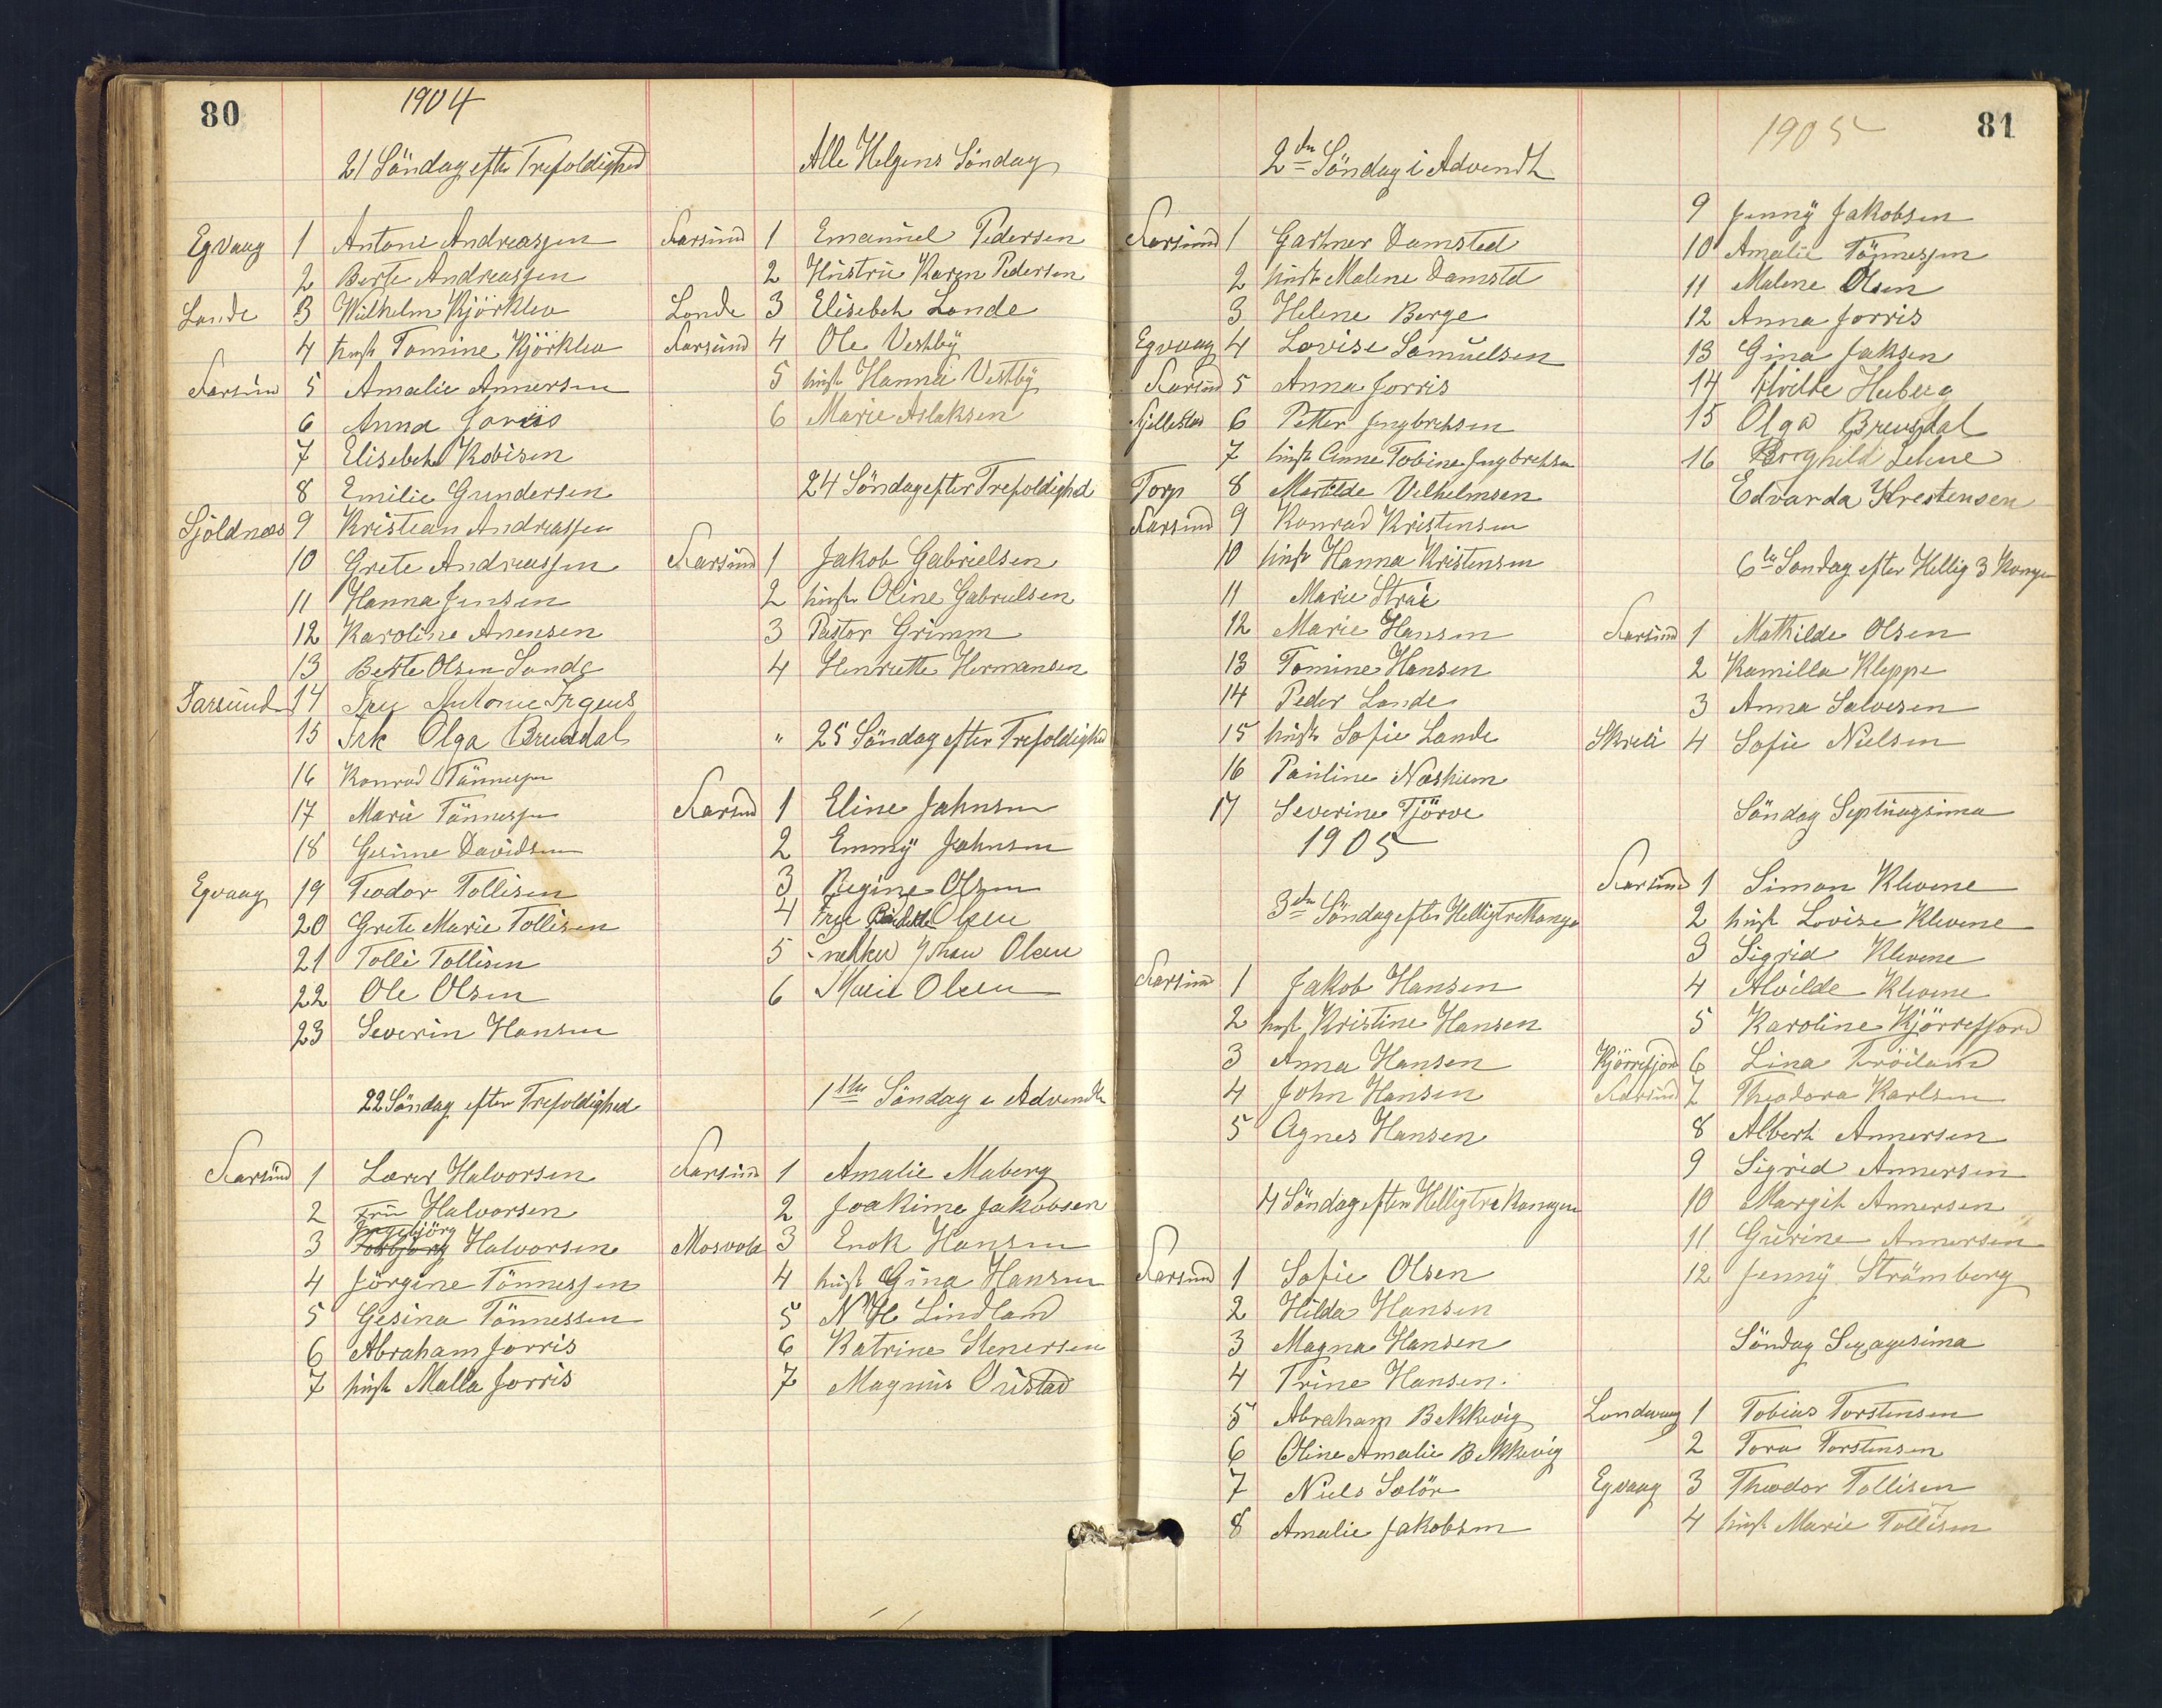 80
1904
21 Söndag efter Trefoldighed
Egvaag 1 Antone Andreassen
2 Berte Andreassen
Lande 3 Wilhelm Kjörklev
4 hust Tomine Kjörklev
Farsund 5 Amalie Annersen
6 Anna Jorris
7 Elisebeh Robisen
8 Emilie Gundersen
Sjöldnæs 9 Kristean Andreassen
10 Grete Andreassen
11 Hanna Jensen
12 Karoline Anensen
13 Berte Olsen Sande
Farsund 14 Fru Antonie Irgens
15 Frk Olga Breudal
16 Konrad Tönnesen
17 Marie Tönnesen
18 Gesine Davidsen
Egvaag 19 Teodor Tollisen
20 Grete Marie Tollisen
21 Tolli Tollisen
22 Ole Olsen
23 Severin Hansen
22 Söndag efter Trefoldighed
Farsund 1 Lærer Halvorsen
2 Fru Halvorsen
3 Ingebjörg Halvorsen
4 Jörgine Tönnessen
5 Gesina Tönnessen
6 Abraham Jorris
7 hust Malla Jorris
Alle Helgens Söndag
Farsund 1 Emanuel Pedersen
2 Hustru Karen Pedersen
Lande 3 Elisebeh Lande
Farsund 4 Ole Vestby
5 hust Hanna Vestby
6 Marie Aslaksen
24 Söndag efter Trefoldighed
Farsund 1 Jakob Gabrielsen
2 hust Oline Gabrielsen
3 Pastor Grimm
4 Henriette Hermansen
" 25 Söndag efter Trefoldighed
Farsund 1 Eline Jahnsen
2 Emmy Jahnsen
3 Regine Olsen
4 Frue Olsen
5 Olsen
6 Marie Olsen
1ste Söndag i Advendt
Farsund 1 Amalie Maberg
2 Joakime Jakobsen
Mosvold 3 Enok Hansen
4 hust Gina Hansen
5 N H Lindland
6 Katrine Stenersen
7 Magnus Oustad
81
2den Söndag i Advendt
Farsund 1 Gartner Damsted
2 hust Malene Damsted
3 Helene Berge
Egvaag 4 Lovise Samuelsen
Farsund 5 Anna Jorris
6 Petter Jngbrehsen
7 hust Anne Tobine Jngbrehsen
Torp 8 Martilde Velhelmsen
Farsund 9 Konrad Kristensen
10 hust Hanna Kristensen
11 Marie Strai
12 Marie Hansen
13 Tomine Hansen
14 Peder Lande
15 hust Sofie Lande
16 Pauline Næshiem
17 Severine Tjörve
1905
3den Söndag efter Helligtrekonger
Farsund 1 Jakob Hansen
2 hust Kristine Hansen
3 Anna Hansen
4 John Hansen
5 Agnes Hansen
4 Söndag efter Helligtrekonger
Farsund 1 Sofie Olsen
2 Hilda Hansen
3 Magna Hansen
4 Trine Hansen
5 Abraham Bekkevig
6 Oline Amalie Bekkevig
7 Niels Solör
8 Amalie Jakobsen
1905
9 Jenny Jakobsen
10 Amalie Tönnessen
11 Malene Olsen
12 Anna Jorris
13 Gina Jaksen
14 Huberg
15 Olga Breudal
16 Borghild Lehne
Edvarda Krestensen
6te Söndag efter Hellig 3 Konger
Farsund 1 Mathilde Olsen
2 Kamilla Kleppe
3 Anna Salvesen
Skreli 4 Sofie Nielsen
Söndag Septuagsima
Farsund 1 Simon Klevene
2 hust Lovise Klevene
3 Sigrid Klevene
4 Alvilde Klevene
5 Karoline Kjörrefjord
Kjörrefjord 6 Lina Fröiland
Farsund 7 Theodora Karlsen
8 Albert Annersen
9 Sigrid Annersen
10 Margit Annersen
11 Gurine Annersen
12 Jenny Strömberg
Söndag Sexagesima
Londevaag 1 Tobias Torstensen
2 Tora Torstensen
Egvaag 3 Theodor Tollisen
4 hust Marie Tollisen